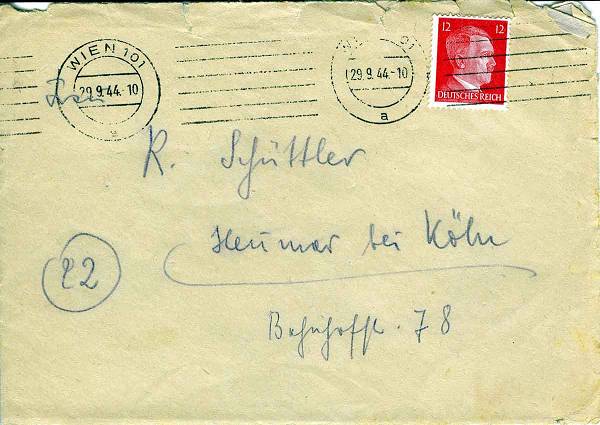 WIEN 101
29.9.44.-10
a
29.9.44.-10
a
12 12
DEUTSCHES REICH
Frau
R. Schüttler
Heumar bei Köln
22
Bahnhofstr. 78